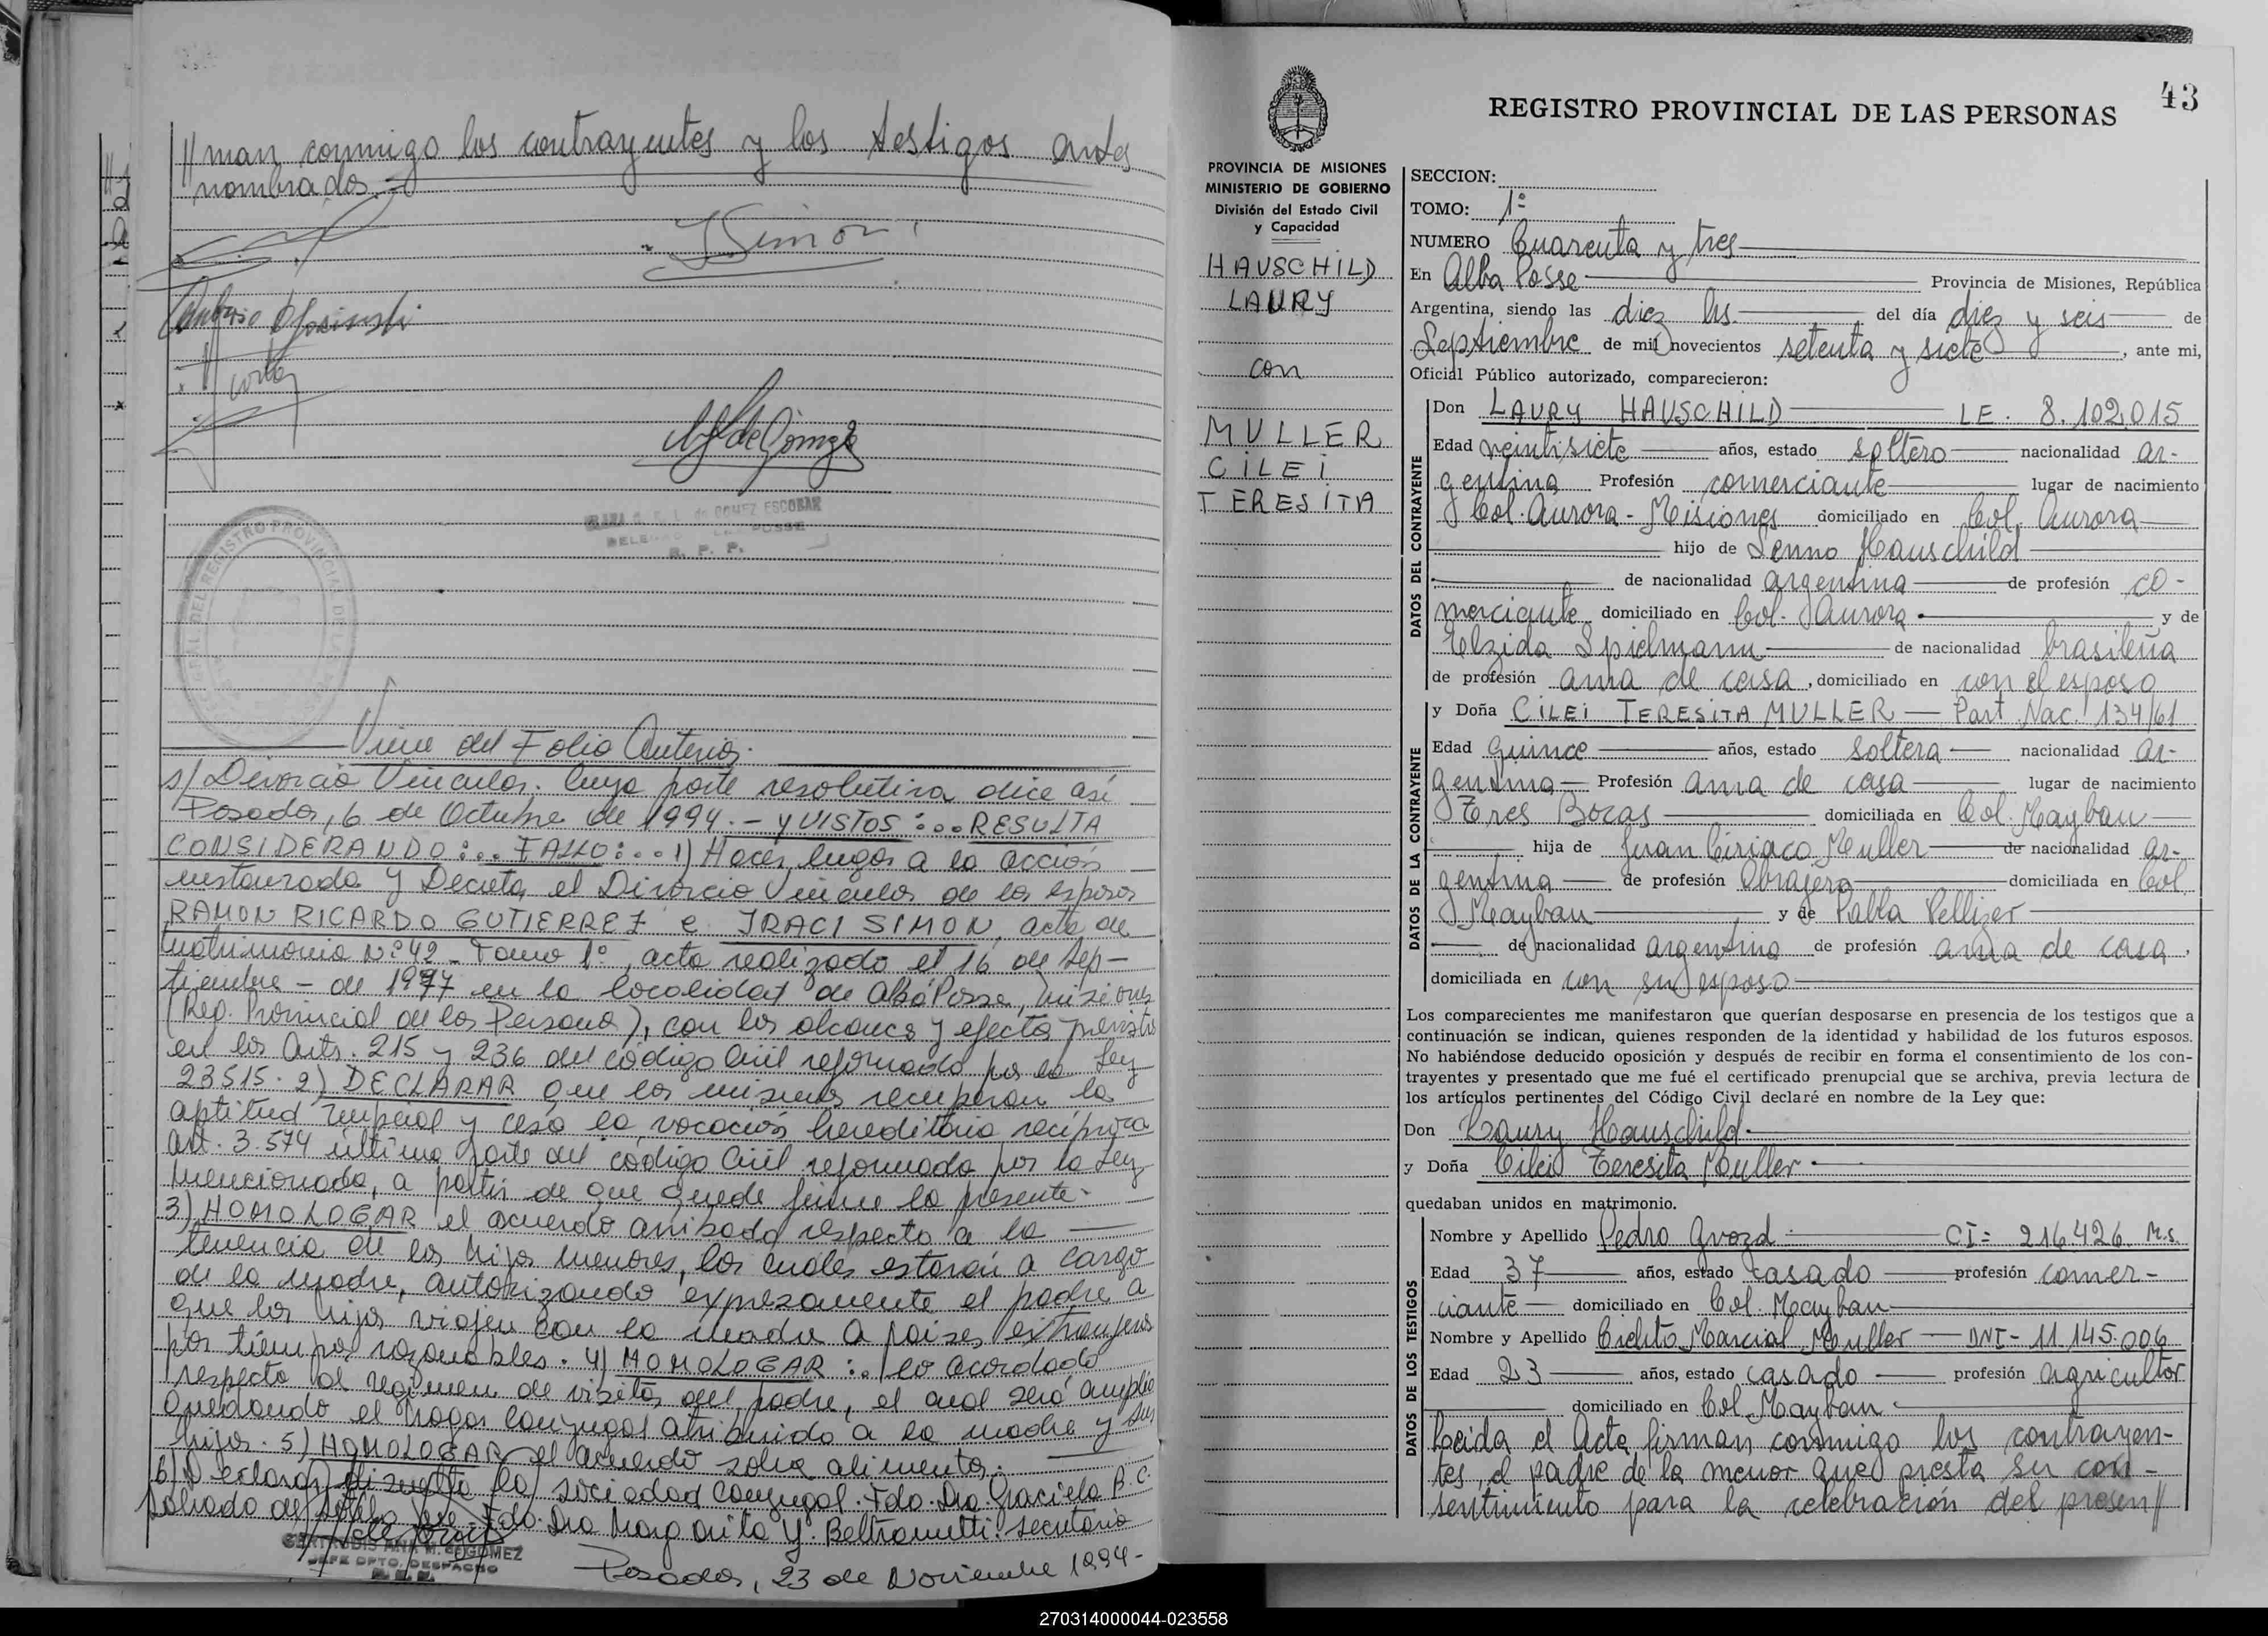 //man conmigo los contrayentes y los testigos antes
nombrados.
Simon
Viene del Folio Anterior.
s/ Divorcio Vincular. Cuya parte resolutiva dice así
Posadas, 6 de Octubre de 1994. - Y VISTOS:... RESULTA
CONSIDERANDO:... FALLO:... 1) Hacer lugar a la acción
instaurada y Decreta el Divorcio Vincular de los esposos
RAMON RICARDO GUTIERREZ e IRACI SIMON, acta de
Matrimonio Nº 42 - Tomo 1º, acto realizado el 16 de Sep-
tiembre - de 1977 en la localidad de Alba Posse, Misiones
(Reg. Provincial de las Personas), con los alcances y efectos previstos
en los Arts. 215 y 236 del código Civil reformado por la Ley
23515. 2) DECLARAR que los mismos recuperan la
aptitud nupcial y cesa la vocación hereditaria recíproca
Art. 3.574 última parte del código Civil reformado por la Ley
mencionada, a partir de que quede firme la presente.
3) HOMOLOGAR el acuerdo arribado respecto a la
tenencia de los hijos menores, los cuales estarán a cargo
de la madre, autorizando expresamente el padre a
que los hijos viajen con la madre a países extranjeros
por tiempos razonables. 4) HOMOLOGAR:.. lo acordado
respecto al regimen de visitas del padre, el cual será amplio
quedando el hogar conyugal atribuido a la madre y sus
hijos. 5) HOMOLOGAR el acuerdo sobre alimentos.
6) Declarar disuelta la sociedad conyugal. Fdo. Dra. Graciela B. C.
Fdo. Dra Margarita Y. Beltrametti. Secretaria
GERTRUDIS ANA M. de GOMEZ
JEFE DPTO. DESPACHO
Posadas, 23 de Noviembre 1994-
43
REGISTRO PROVINCIAL DE LAS PERSONAS
PROVINCIA DE MISIONES
MINISTERIO DE GOBIERNO
División del Estado Civil
y Capacidad
HAUSCHILD
LAURY
con
MULLER
CILEI
TERESITA
SECCION:
TOMO: 1º
NUMERO Cuarenta y tres
En Alba Posse Provincia de Misiones, República
Argentina, siendo las diez hs. del día diez y seis de
Septiembre de mil novecientos setenta y siete, ante mi,
Oficial Público autorizado, comparecieron:
DATOS DEL CONTRAYENTE
Don LAURY HAUSCHILD LE. 8.102.015
Edad veintisiete años, estado soltero nacionalidad ar-
gentina Profesión comerciante lugar de nacimiento
Col. Aurora - Misiones domiciliado en Col. Aurora
hijo de Senno Hauschild
de nacionalidad argentina de profesión co-
merciante domiciliado en Col. Aurora y de
Elzida Spielmann de nacionalidad brasileña
de profesión ama de casa, domiciliado en con el esposo
DATOS DE LA CONTRAYENTE
y Doña CILEI TERESITA MULLER - Part. Nac. 134/61
Edad quince años, estado soltera nacionalidad ar-
gentina Profesión ama de casa lugar de nacimiento
Tres Bocas domiciliada en Col. Mayban
hija de Juan Ciriaco Muller de nacionalidad ar-
gentina de profesión Obrajero domiciliada en Col.
Mayban y de Pabla Pellizer
de nacionalidad argentina de profesión ama de casa,
domiciliada en con su esposo
Los comparecientes me manifestaron que querían desposarse en presencia de los testigos que a
continuación se indican, quienes responden de la identidad y habilidad de los futuros esposos.
No habiéndose deducido oposición y después de recibir en forma el consentimiento de los con-
trayentes y presentado que me fué el certificado prenupcial que se archiva, previa lectura de
los artículos pertinentes del Código Civil declaré en nombre de la Ley que:
Don Laury Hauschild
y Doña Cilei Teresita Muller
quedaban unidos en matrimonio.
DATOS DE LOS TESTIGOS
Nombre y Apellido Pedro Gvozd CI= 216426 Ms.
Edad 37 años, estado casado profesión comer-
ciante domiciliado en Col. Mayban
Nombre y Apellido Marcial Muller - DNI- 11.145.006
Edad 23 años, estado casado profesión agricultor
domiciliado en Col. Mayban
Leída el Acta firman conmigo los contrayen-
tes, el padre de la menor que presta su con-
sentimiento para la celebración del presen//
270314000044-023558